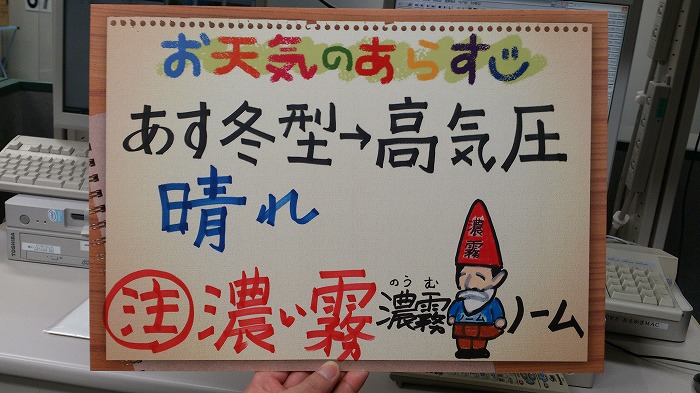 お天気のあらすじ
あす冬型→高気圧
晴れ
注 濃い霧 濃霧 ノーム
のうむ
濃霧
ノーム
TOSHIBA